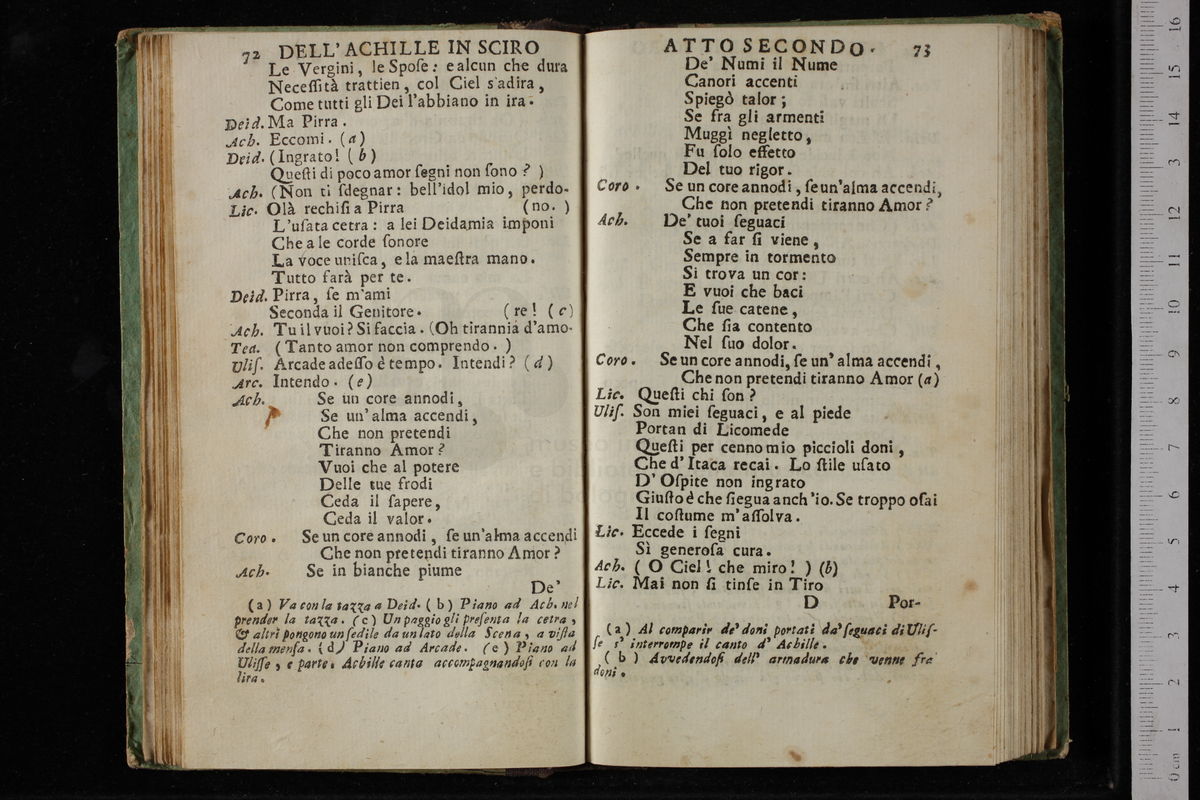 72 DELL' ACHILLE IN SCIRO
Le Vergini, le Spoſe: e alcun che dura
Neceſſità trattien, col Ciel s'adira,
Come tutti gli Dei l'abbiano in ira.
Deid. Ma Pirra.
Ach. Eccomi. (a)
Deid. (Ingrato! (b)
Queſti di poco amor ſegni non ſono? )
Ach. (Non ti ſdegnar: bell'idol mio, perdo-
Lic. Olà rechiſi a Pirra (no. )
L'uſata cetra: a lei Deidamia imponi
Che a le corde ſonore
La voce uniſca, e la maeſtra mano.
Tutto farà per te.
Deid. Pirra, ſe m'ami
Seconda il Genitore. (re! (c)
Ach. Tu il vuoi? Si faccia. (Oh tirannia d'amo-
Tea. (Tanto amor non comprendo. )
Uliſ. Arcade adeſſo è tempo. Intendi? (d)
Arc. Intendo. (e)
Ach. Se un core annodi,
Se un' alma accendi,
Che non pretendi
Tiranno Amor?
Vuoi che al potere
Delle tue frodi
Ceda il ſapere,
Ceda il valor.
Coro. Se un core annodi, ſe un'alma accendi
Che non pretendi tiranno Amor?
Ach. Se in bianche piume
De'
(a) Va con la tazza a Deid. (b) Piano ad Ach. nel
prender la tazza. (c) Un paggio gli preſenta la cetra,
& altri pongono un ſedile da un lato della Scena, a viſta
della menſa. (d) Piano ad Arcade. (e) Piano ad
Uliſſe, e parte. Achille canta accompagnandoſi con la
lira.
ATTO SECONDO. 73
De' Numi il Nume
Canori accenti
Spiegò talor;
Se fra gli armenti
Muggì negletto,
Fu ſolo effetto
Del tuo rigor.
Coro. Se un core annodi, ſe un'alma accendi,
Che non pretendi tiranno Amor?
Ach. De' tuoi ſeguaci
Se a far ſi viene,
Sempre in tormento
Si trova un cor:
E vuoi che baci
Le ſue catene,
Che ſia contento
Nel ſuo dolor.
Coro. Se un core annodi, ſe un' alma accendi,
Che non pretendi tiranno Amor (a)
Lic. Queſti chi ſon?
Uliſ. Son miei ſeguaci, e al piede
Portan di Licomede
Queſti per cenno mio piccioli doni,
Che d' Itaca recai. Lo ſtile uſato
D' Oſpite non ingrato
Giuſto è che ſiegua anch'io. Se troppo oſai
Il coſtume m'aſſolva.
Lic. Eccede i ſegni
Sì generoſa cura.
Ach. ( O Ciel! che miro! ) (b)
Lic. Mai non ſi tinſe in Tiro
D Por-
(a) Al comparir de' doni portati da' ſeguaci di Uliſ-
ſe s' interrompe il canto d' Achille.
( b ) Avvedendoſi dell' armadura che venne fra
doni.